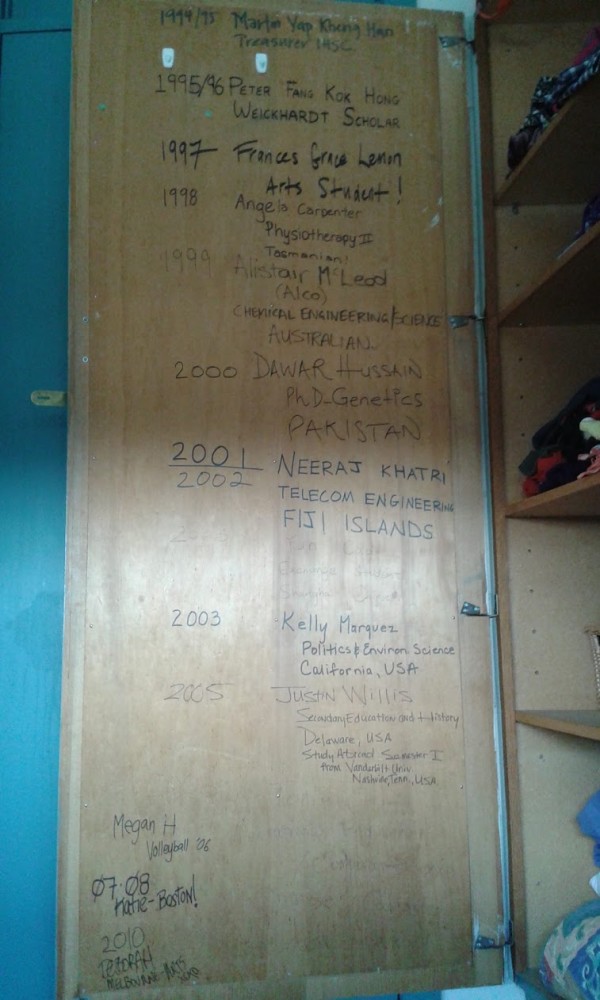 1994/95 Martin Yap Kheng Han
Treasurer IHSC
1995/96 PETER FANG KOK HONG
WEICKHARDT SCHOLAR
1997 Frances Grace Lemon
Arts Student!
1998 Angela Carpenter
Physiotherapy II
Tasmanian!
1999 Alistair McLeod
(Alco)
CHEMICAL ENGINEERING/SCIENCE
AUSTRALIAN
2000 DAWAR HUSSAIN
Ph.D-Genetics
PAKISTAN
2001 NEERAJ KHATRI
2002
TELECOM ENGINEERING
FIJI ISLANDS
2003 Kelly Marquez
Politics & Environ Science
California, USA
2005 JUSTIN WILLIS
Secondary Education and History
Delaware, USA
Study Abroad Semester II
from Vanderbilt Univ.
Nashville, Tenn., USA
Megan H
Volleyball '06
07·08
Katie-Boston!
2010
DEBORAH
MELBOURNE ARTS